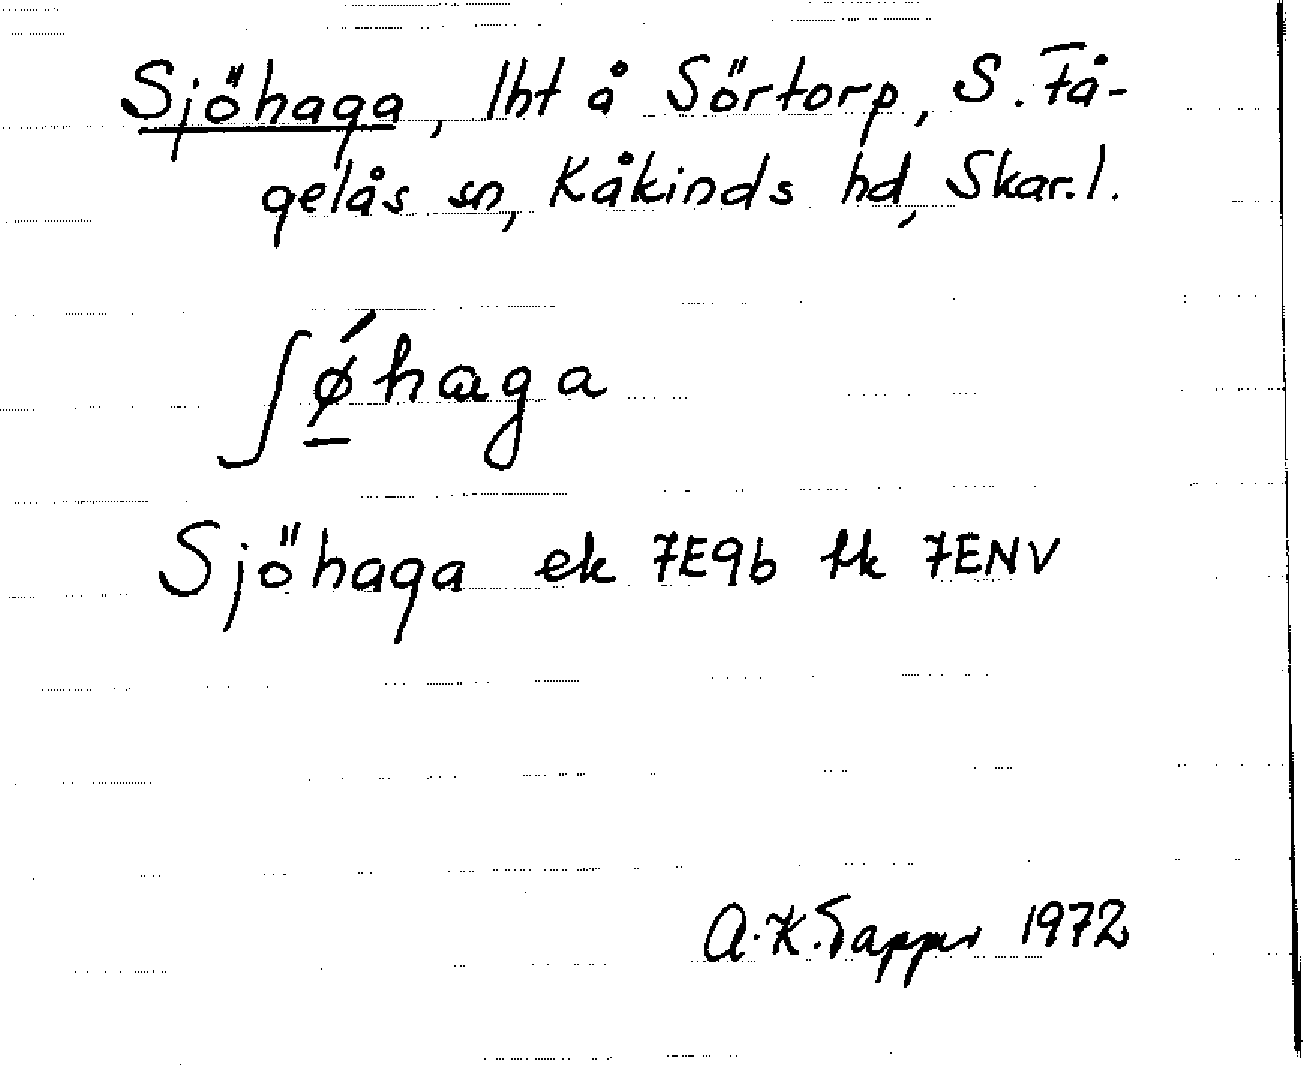 Sjöhaga, lht å Sörtorp, S. Få-
gelås sn, Kåkinds hd, Skar.l.
ʃǿ̠haga
Sjöhaga ek 7E9b tk 7ENV
A.K. 1972